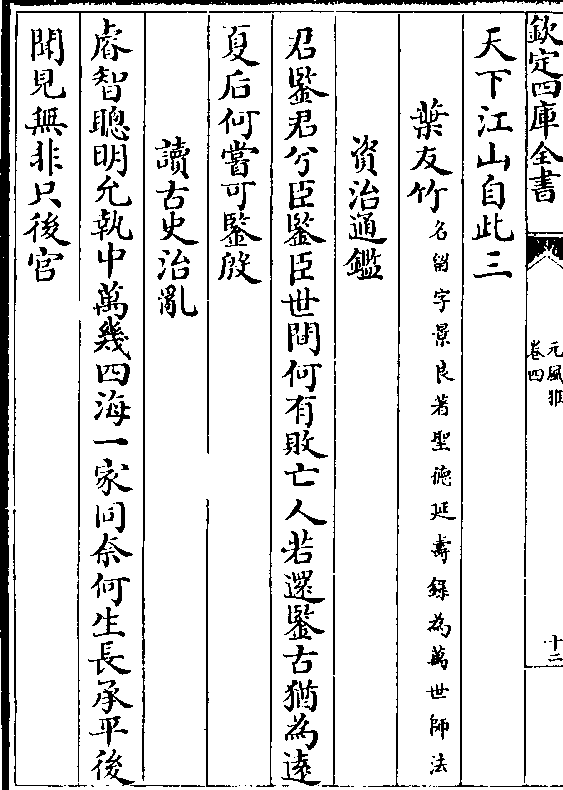 欽定四庫全書
元風雅
卷四
十二
天下江山自此三
葉友竹名留字景良著聖德延壽錄為萬世師法
資治通鑑
君鑒君兮臣鑒臣世間何有敗亡人若還鑒古猶為遠
夏后何嘗可鑒殷
讀古史治亂
睿智聰明允執中萬幾四海一家同奈何生長承平後
聞見無非只後宫